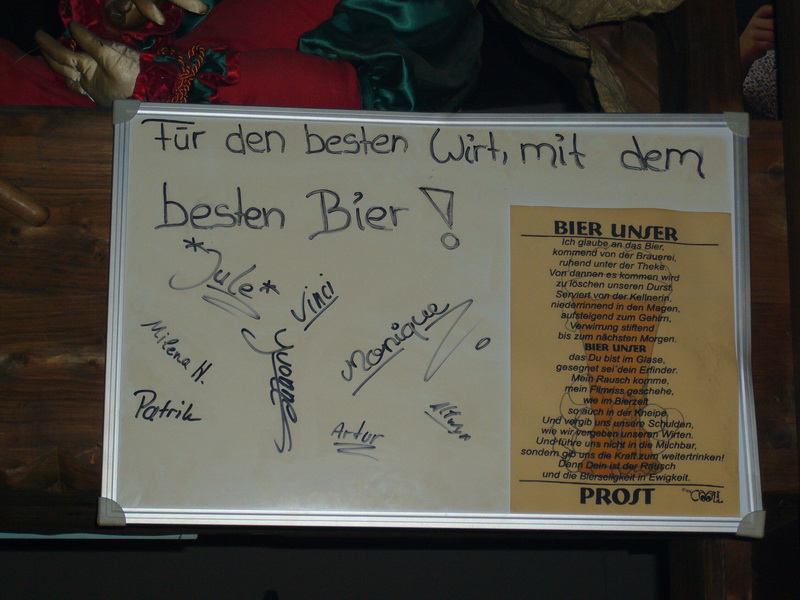 Für den besten Wirt, mit dem
besten Bier!
*Jule*
Vinci
Monique
Milena H.
Yvonne
Patrik
Artur
BIER UNSER
Ich glaube an das Bier,
kommend von der Brauerei,
ruhend unter der Theke.
Von dannen es kommen wird
zu löschen unseren Durst,
Serviert von der Kellnerin,
niederrinnend in den Magen,
aufsteigend zum Gehirn,
Verwirrung stiftend
bis zum nächsten Morgen.
BIER UNSER
das Du bist im Glase,
gesegnet sei dein Erfinder.
Mein Rausch komme,
mein Filmriss geschehe,
wie im Bierzelt
so auch in der Kneipe.
Und vergib uns unsere Schulden,
wie wir vergeben unseren Wirten.
Und führe uns nicht in die Milchbar,
sondern gib uns die Kraft zum weitertrinken!
Denn Dein ist der Rausch
und die Bierseligkeit in Ewigkeit.
PROST
COOL